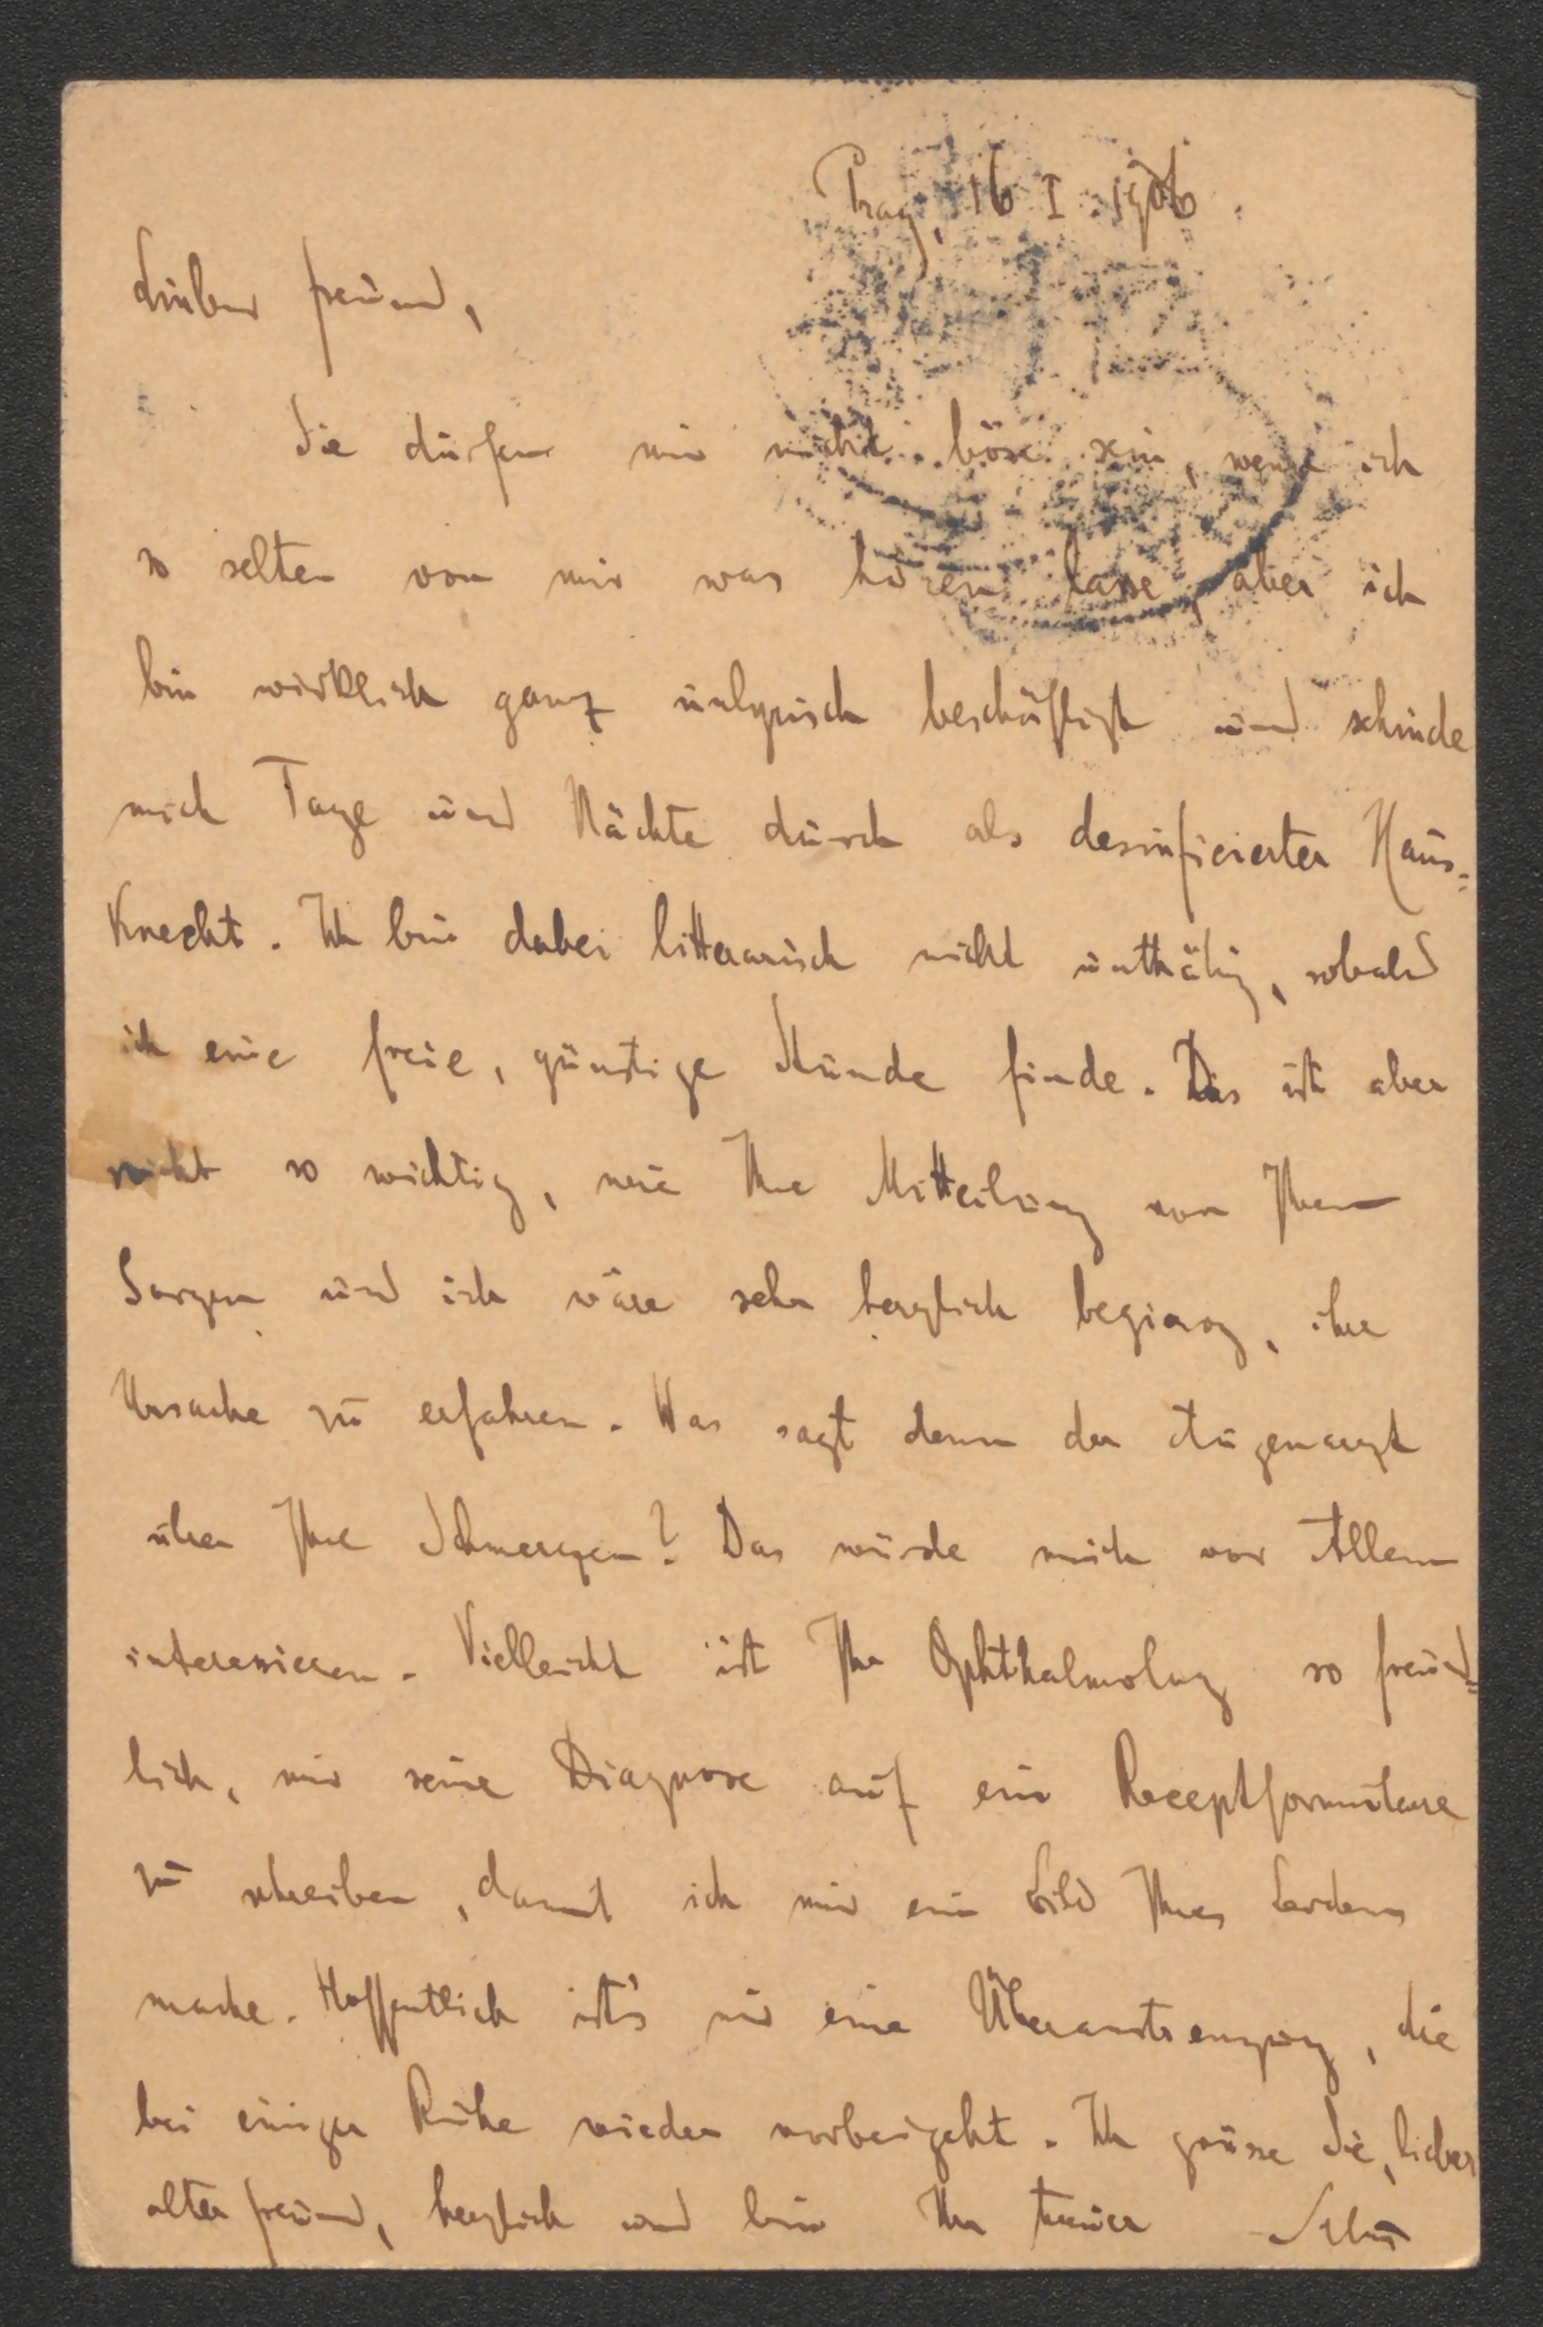 Prag, 16 I 1906.
Lieber Freund,
Sie dürfen mir nicht böse sein, wenn ich
so selten von mir was hören lasse, aber ich
bin wirklich ganz unlyrisch beschäftigt und schinde
mich Tage und Nächte durch als desinficierter Haus=
knecht. Ich bin dabei litterarisch nicht unthätig, sobald
ich eine freie, günstige Stunde finde. Das ist aber
nicht so wichtig, wie Ihre Mitteilung von Ihren
Sorgen und ich wäre sehr herzlich begierig, ihre
Ursache zu erfahren. Was sagt denn der Augenarzt
über Ihre Schmerzen? Das würde mich vor Allem
interessieren. Vielleicht ist Ihr Ophthalmolog so freund=
lich, mir seine Diagnose auf ein Receptformulare
zu schreiben, damit ich mir ein Bild Ihres Leidens
mache. Hoffentlich ist's nur eine Überanstrengung, die
bei einiger Ruhe wieder vorbeigeht. Ich grüsse Sie, lieber
alter Freund, herzlich und bin Ihr treuer